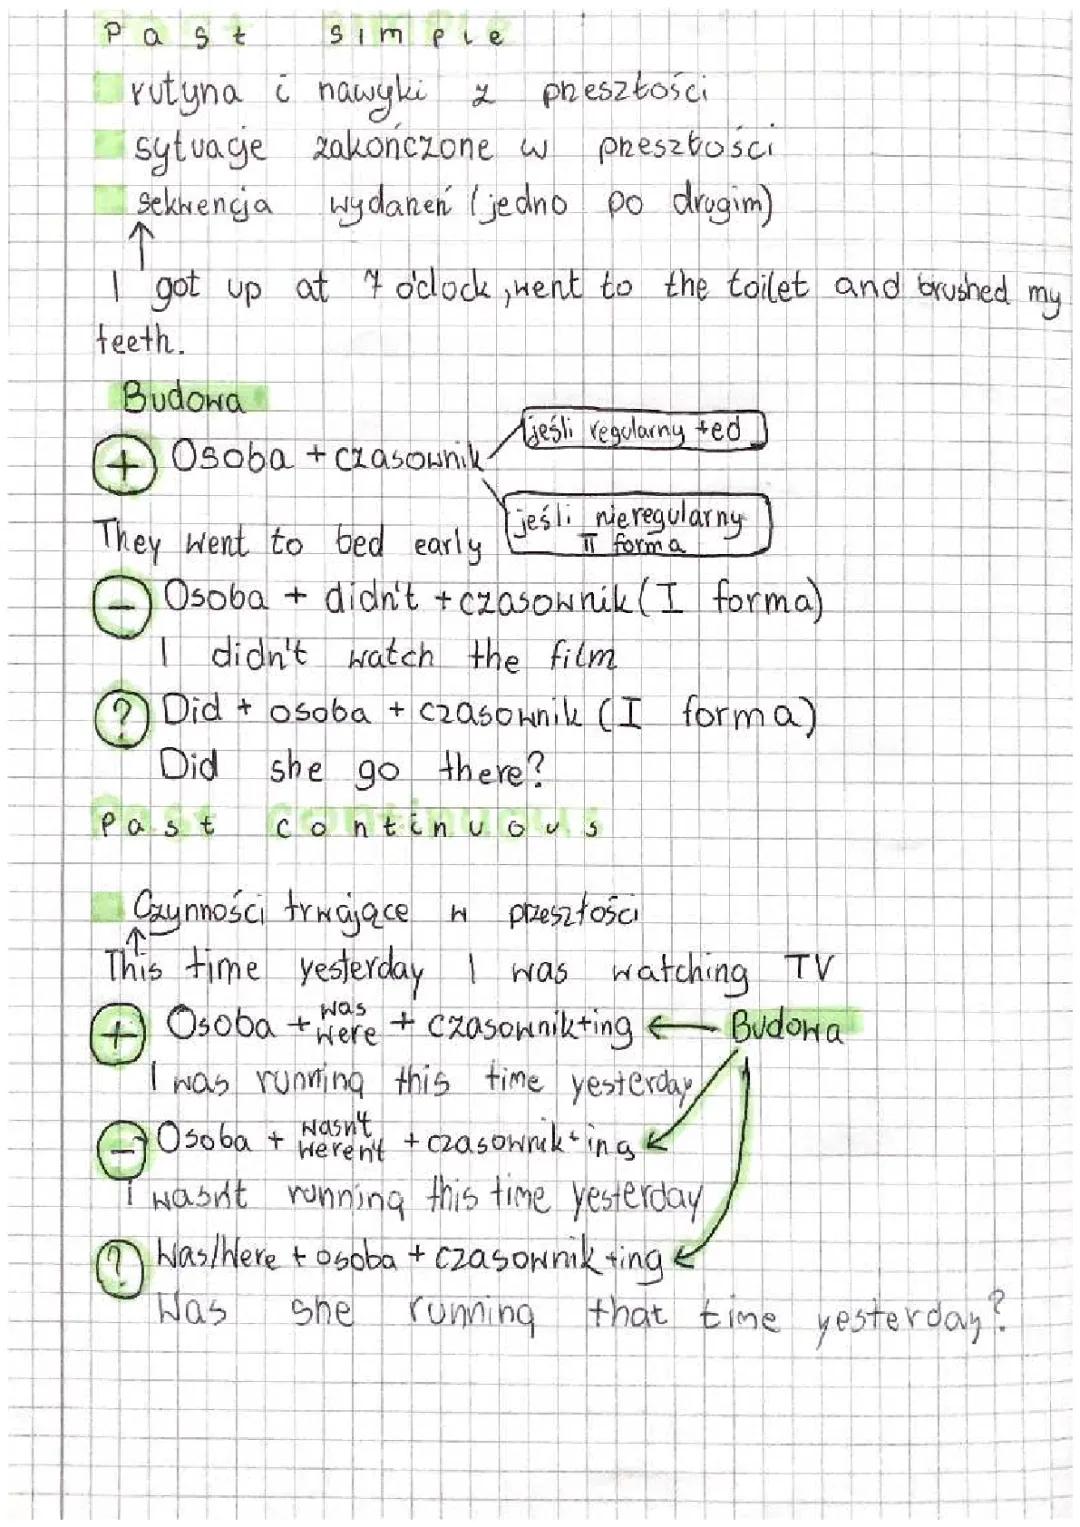 Past simple
rutyna i nawyki z przeszłości
sytuacje zakończone w przeszłości
sekwencja wydarzeń (jedno po drugim)
I got up at 7 o'clock, went to the toilet and brushed my
teeth.
Budowa
jeśli regularny +ed
+ Osoba + czasownik
jeśli nieregularny
II forma
They went to bed early
- Osoba + didn't + czasownik (I forma)
I didn't watch the film
? Did + osoba + czasownik (I forma)
Did she go there?
Past continuous
Czynności trwające w przeszłości
This time yesterday I was watching TV
+ Osoba + was
were + czasownik+ing ← Budowa
I was running this time yesterday
- Osoba + wasn't
weren't + czasownik+ing
I wasn't running this time yesterday
? Was/Were + osoba + czasownik +ing
Was she running that time yesterday?